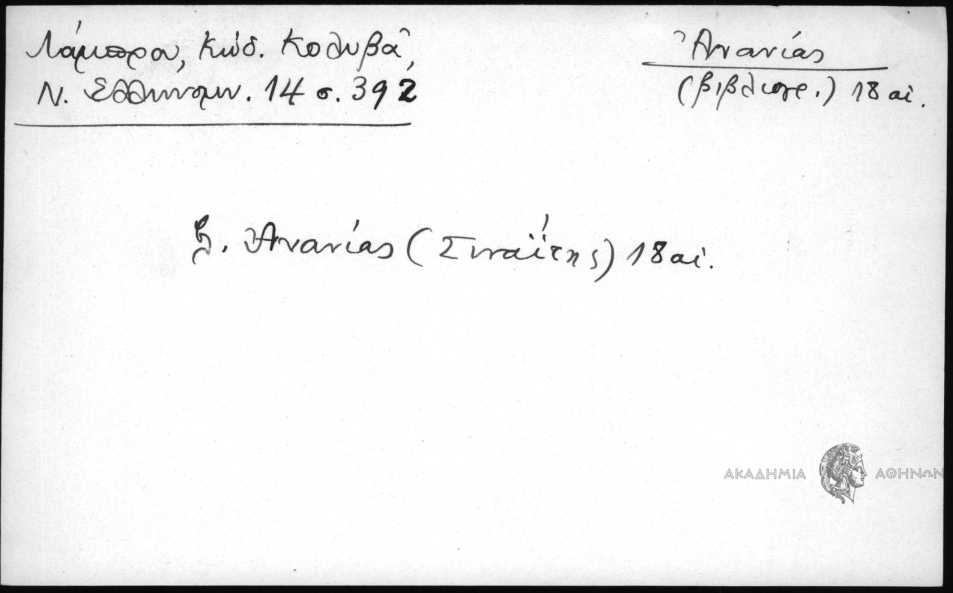 Λάμπρου, Κώδ. Κολυβᾶ,
Ν. Ἑλληνομν. 14 σ. 392
Ἀνανίας
(βιβλιογρ.) 18 αἰ.
β. Ἀνανίας (Σιναΐτης) 18 αἰ.
ΑΚΑΔΗΜΙΑ ΑΘΗΝΩΝ